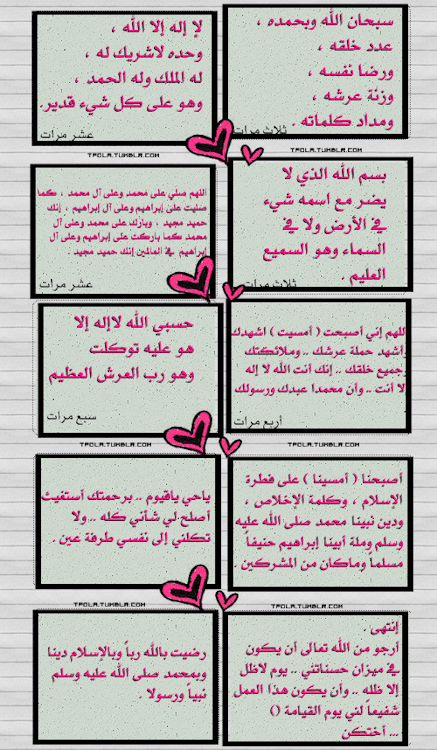 سبحان الله وبحمده ،
عدد خلقه ،
ورضا نفسه ،
وزنة عرشه ،
ومداد كلماته .
ثلاث مرات
لا إله إلا الله ،
وحده لاشريك له ،
له الملك وله الحمد ،
وهو على كل شيء قدير.
عشر مرات
TPOLA.TUMBLR.COM
بسم الله الذي لا
يضر مع اسمه شيء
في الأرض ولا في
السماء وهو السميع
العليم .
ثلاث مرات
اللهم صلي على محمد وعلى آل محمد ، كما
صليت على إبراهيم وعلى آل إبراهيم ، إنك
حميد مجيد ، وبارك على محمد وعلى آل
محمد كما باركت على إبراهيم وعلى آل
إبراهيم في العالمين إنك حميد مجيد .
عشر مرات
TPOLA.TUMBLR.COM
TPOLA.TUMBLR.COM
اللهم إني أصبحت ( أمسيت ) اشهدك
وأشهد حملة عرشك .. وملائكتك
وجميع خلقك .. إنك أنت الله لا إله
إلا أنت .. وأن محمدا عبدك ورسولك
أربع مرات
حسبي الله لاإله إلا
هو عليه توكلت
وهو رب العرش العظيم
سبع مرات
TPOLA.TUMBLR.COM
TPOLA.TUMBLR.COM
أصبحنا ( أمسينا ) على فطرة
الإسلام ، وكلمة الإخلاص ،
ودين نبينا محمد صلى الله عليه
وسلم وملة أبينا إبراهيم حنيفاً
مسلماً وماكان من المشركين .
ياحي ياقيوم .. برحمتك أستغيث
أصلح لي شأني كله .. ولا
تكلني إلى نفسي طرفة عين .
TPOLA.TUMBLR.COM
TPOLA.TUMBLR.COM
إنتهى .
أرجو من الله تعالى أن يكون
في ميزان حسناتني .. يوم لاظل
إلا ظله .. وأن يكون هذا العمل
شفيعاً لني يوم القيامة ()
... أختكن
رضيت بالله رباً وبالإسلام دينا
وبمحمد صلى الله عليه وسلم
نبياً ورسولا .